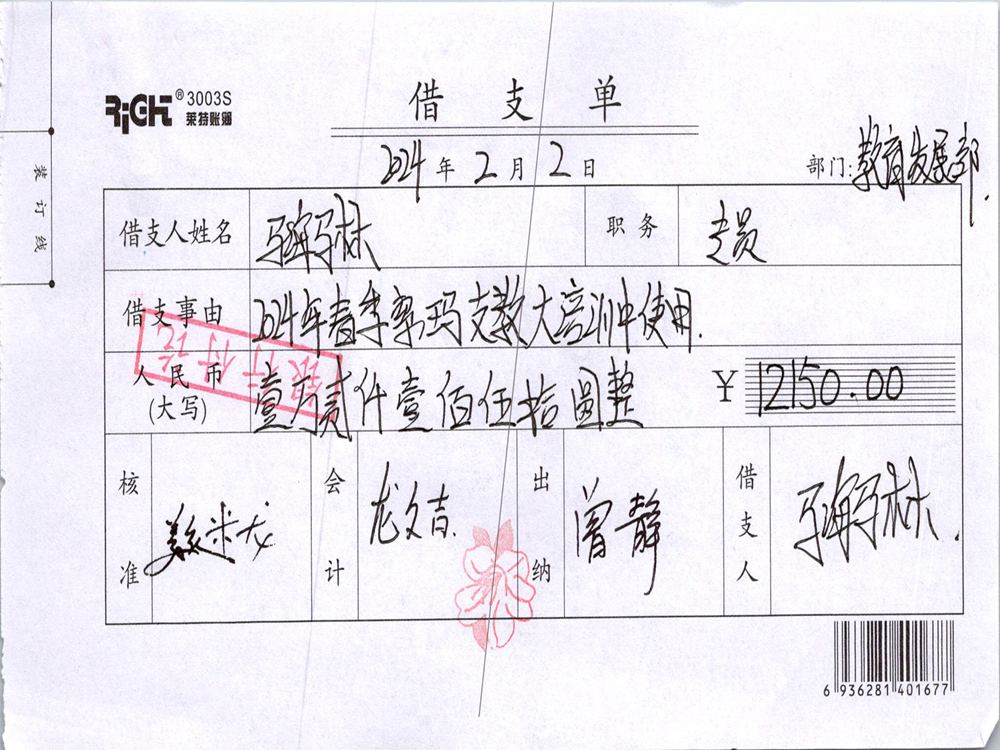 RiGHt® 3003S
莱特账簿
借支单
2024年2月2日
部门:教育发展部.
装订线
借支人姓名
职务 专员
借支事由 2024年春季 支教大培训中使用.
人民币(大写) 壹万贰仟壹佰伍拾圆整 ¥ 12150.00
银行付讫
核准
会计 龙文吉.
出纳 曾静
借支人
6 936281 401677